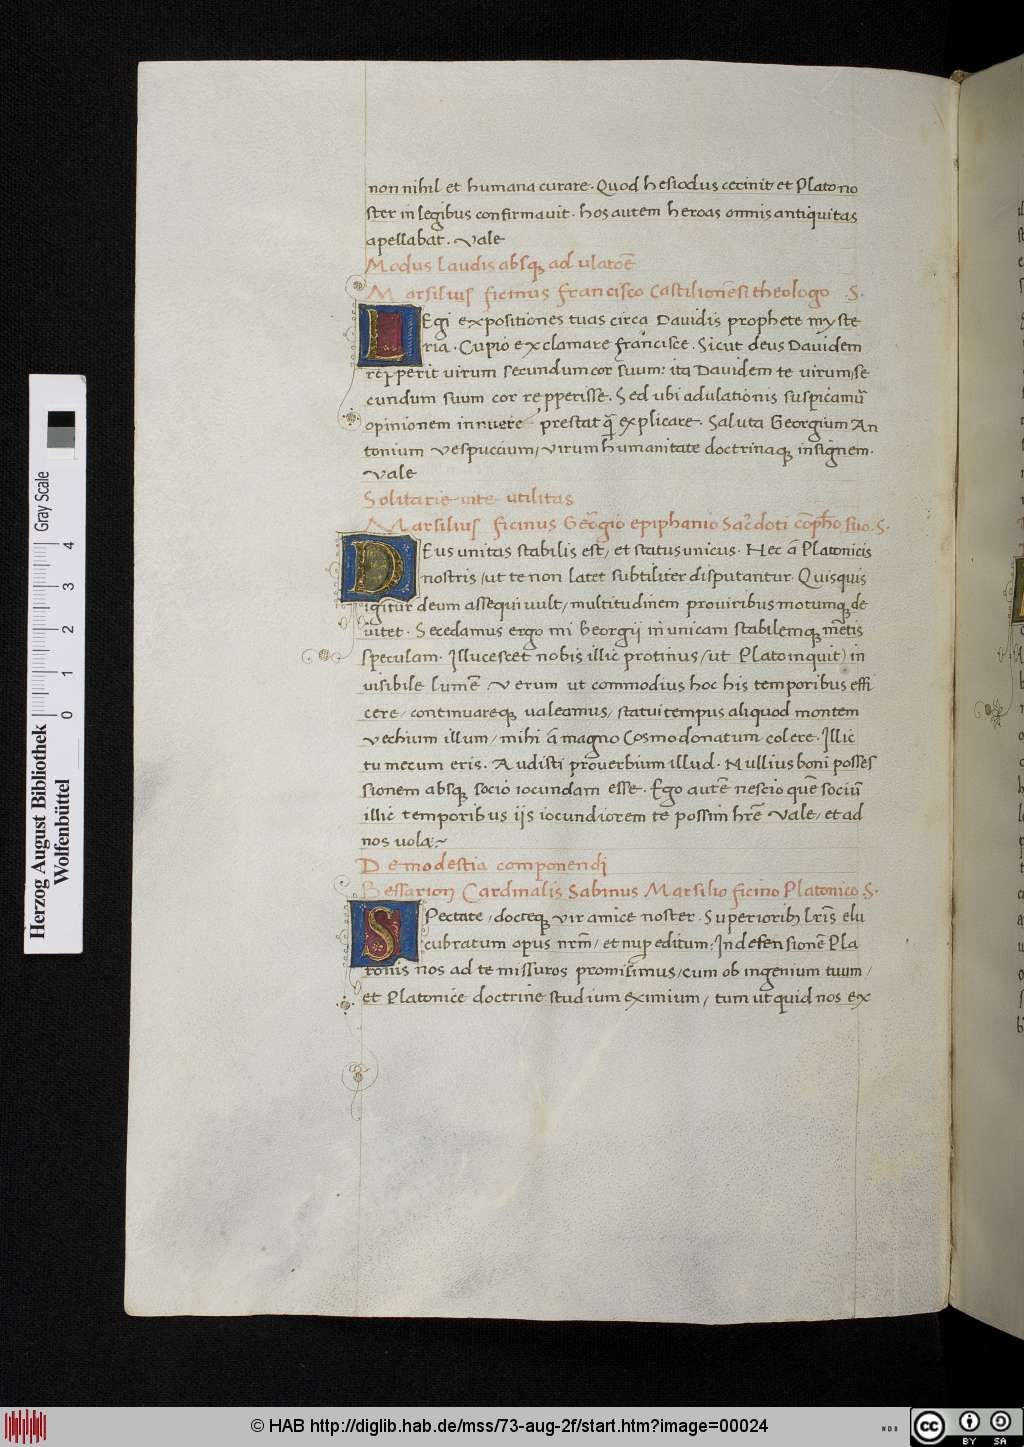 non nihil et humana curare. Quod hesiodus cecinit et Plato no
ster in legibus confirmauit. hos autem heroas omnis antiquitas
apellabat. Vale
Modus laudis absq; adulatiōe
Marsilius ficinus francisco Castilionēsi theologo .S.
LEgi expositiones tuas circa Dauidis prophete myste
ria. Cupio exclamare francisce. Sicut deus Dauidem
repperit uirum secundum cor suum: ita Dauidem te uirum/se
cundum suum cor repperisse. Sed ubi adulationis suspicamur
opinionem innuere prestat q̄ explicare. Saluta Georgium An
tonium Vespuccium/uirum humanitate doctrinaq; insignem.
Vale
Solitarie uite utilitas
Marsilius ficinus Georgio epiphanio Sac̄doti cōph̄o suo.S.
DEus unitas stabilis est/et status unicus. Hec a Platonicis
nostris/ut te non latet subtiliter disputantur. Quisquis
igitur deum assequi uult/multitudinem pro uiribus motumq; de
uitet. Secedamus ergo mi Georgii in unicam stabilemq; mētis
speculam. Illucescet nobis illic protinus/ut Plato inquit) in
uisibile lumē. Verum ut commodius hoc his temporibus effi
cere/continuareq; ualeamus/statui tempus aliquod montem
Vechium illum/mihi a magno Cosmo donatum colere. Illic
tu mecum eris. Audisti prouerbium illud. Nullius boni posses
sionem absq; socio iocundam esse. Ego autē nescio quē sociū
illic temporibus iis iocundiorem te possim hr̄e Vale/et ad
nos uola:~
De modestia componendi
Bessarion Cardinalis Sabinus Marsilio ficino Platonico.S.
SPectate/docteq; uir amice noster. Superiorib; lr̄is elu
cubratum opus nrm̄/et nup editum: In defensionē Pla
tonis nos ad te missuros promisimus/cum ob ingenium tuum/
et Platonice doctrine studium eximium/tum ut quid nos ex
Herzog August Bibliothek
Wolfenbüttel
0 1 2 3 4
Gray Scale
© HAB http://diglib.hab.de/mss/73-aug-2f/start.htm?image=00024
cc BY SA